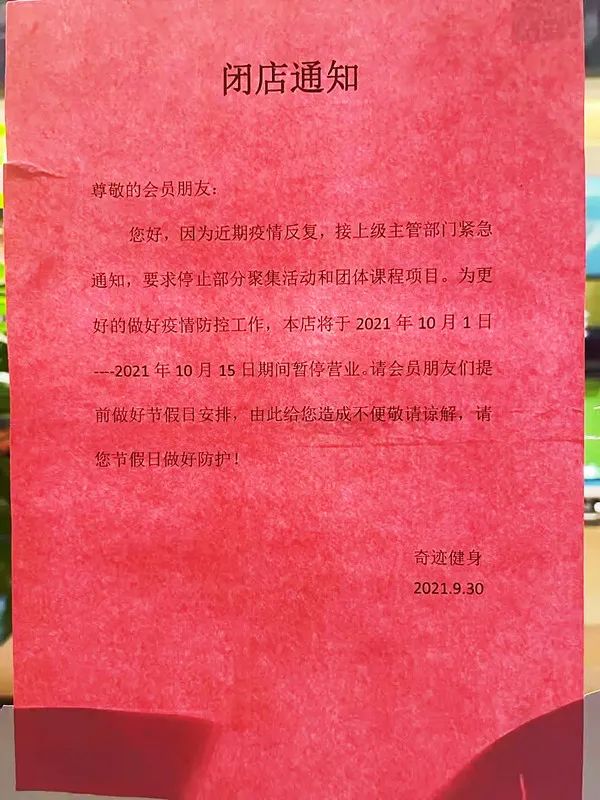 闭店通知
尊敬的会员朋友：
您好，因为近期疫情反复，接上级主管部门紧急
通知，要求停止部分聚集活动和团体课程项目。为更
好的做好疫情防控工作，本店将于 2021 年 10 月 1 日
----2021 年 10 月 15 日期间暂停营业。请会员朋友们提
前做好节假日安排，由此给您造成不便敬请谅解，请
您节假日做好防护！
奇迹健身
2021.9.30